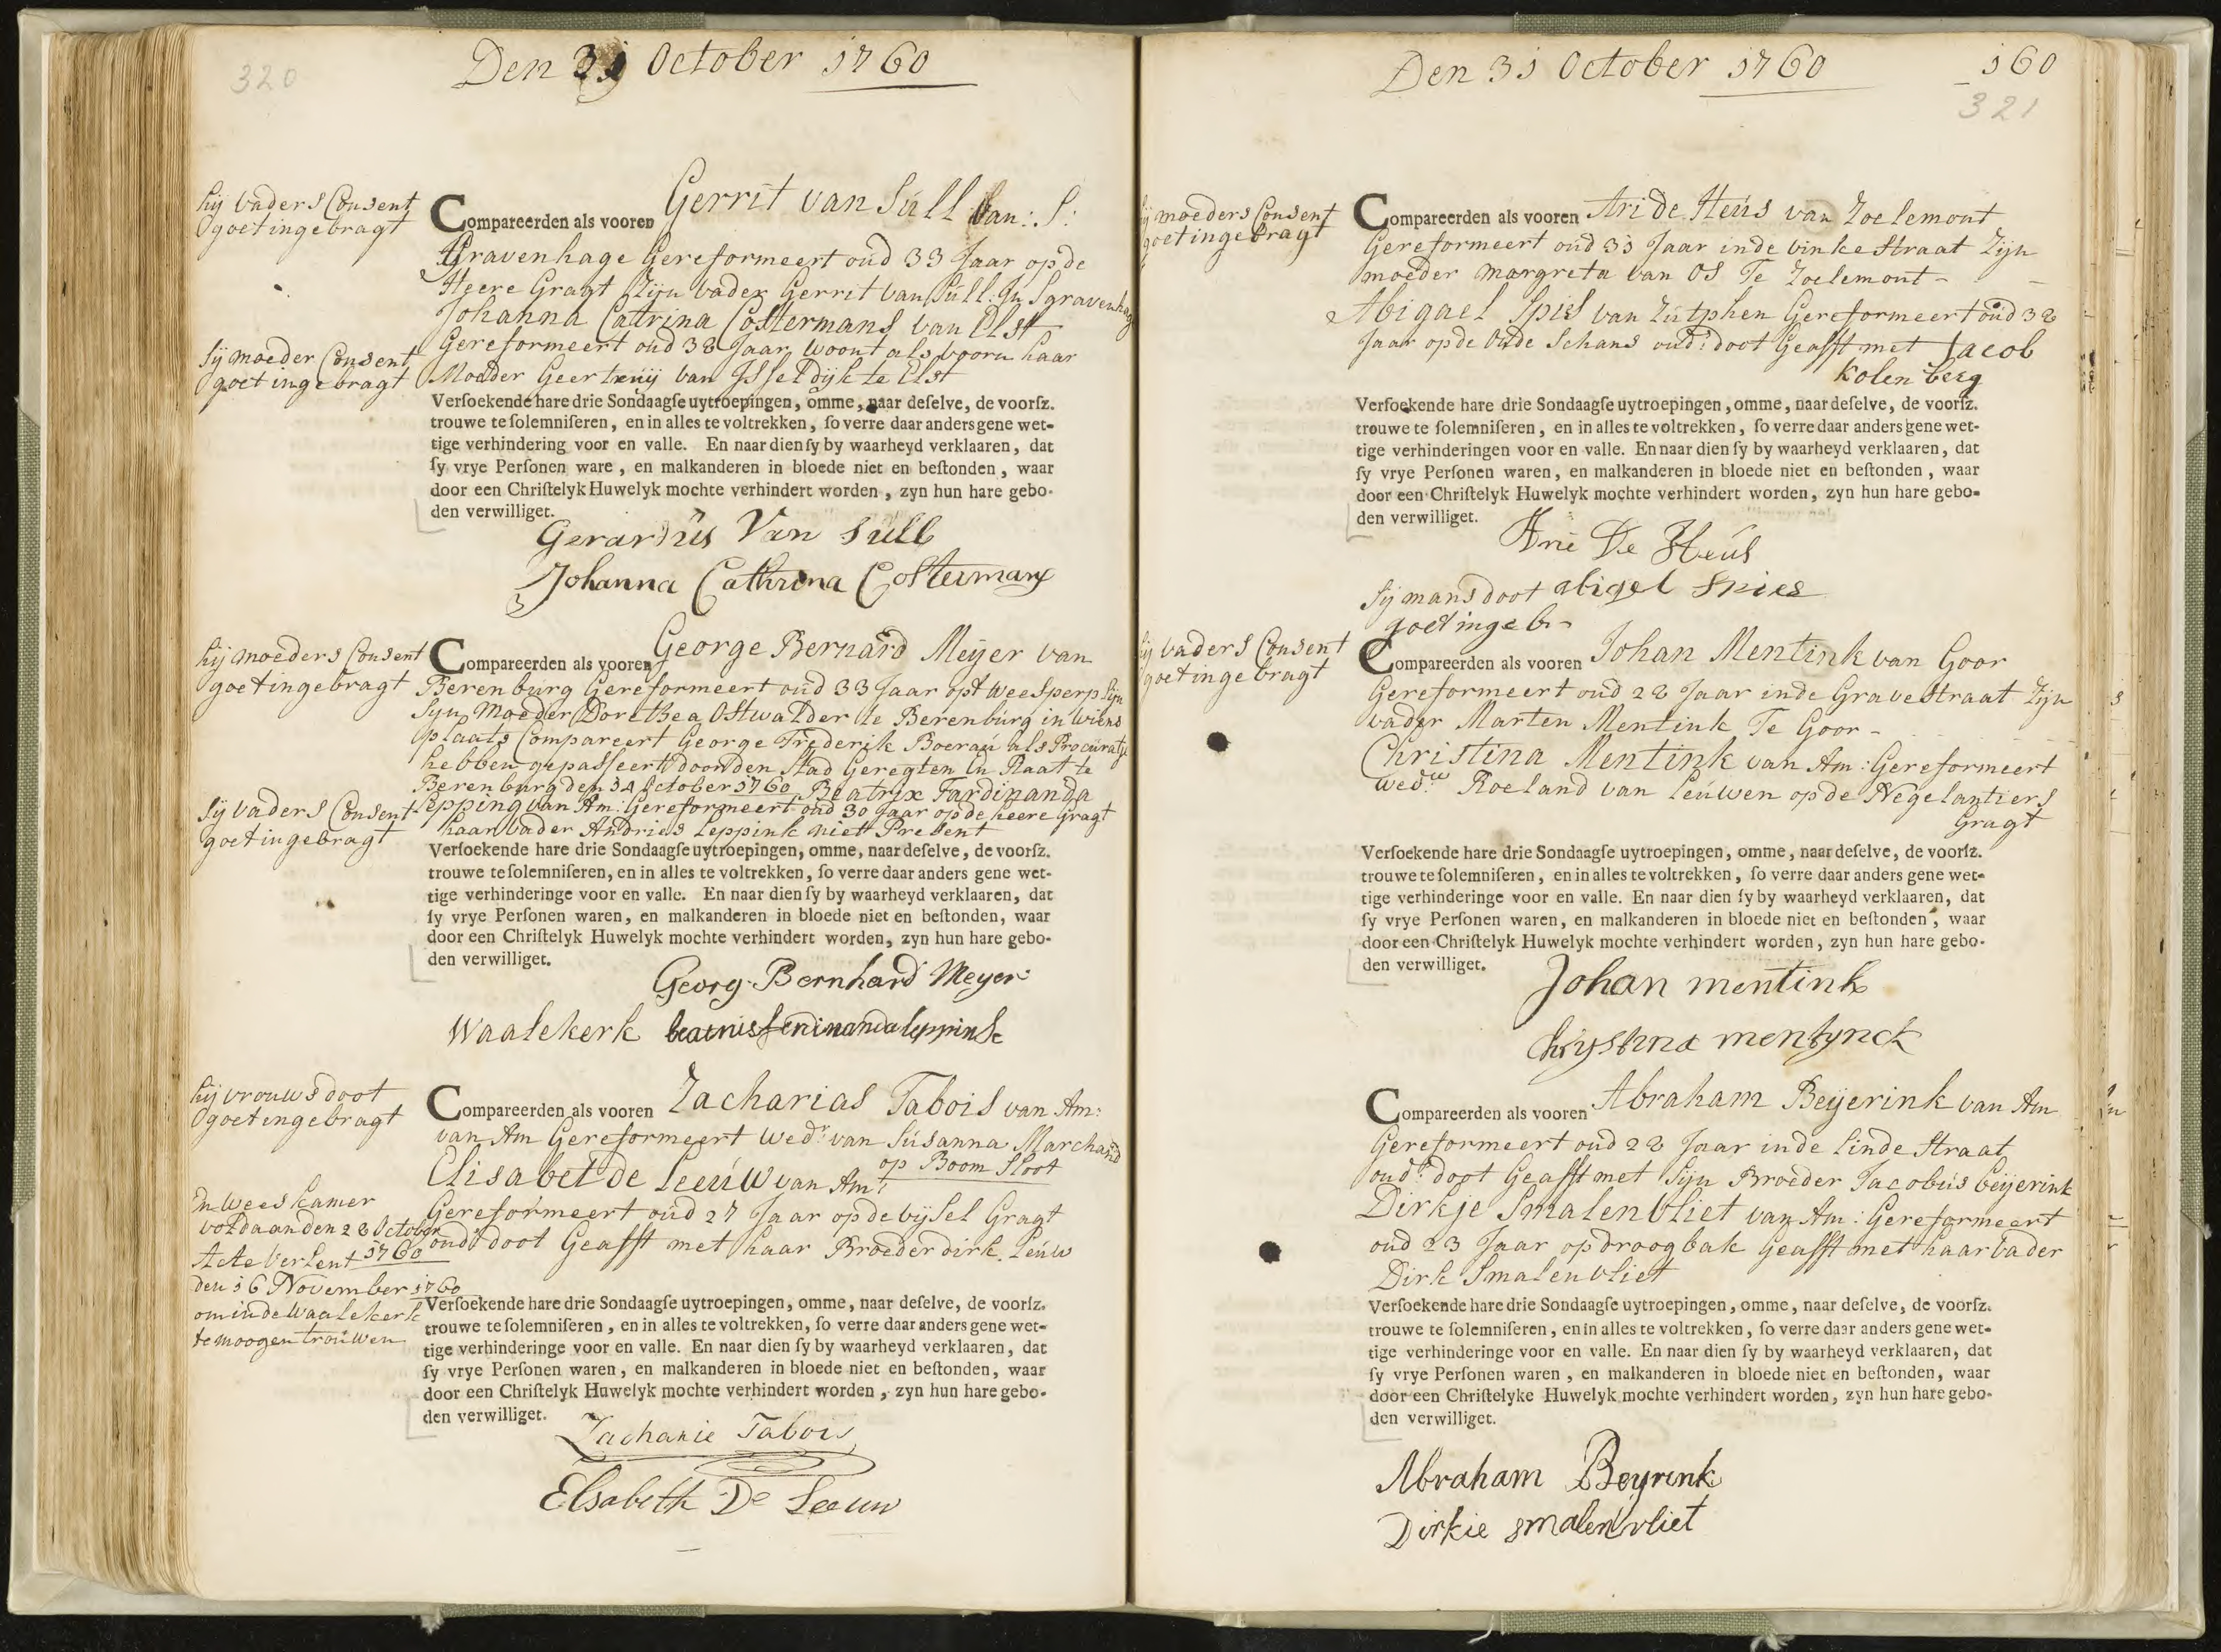 320
Den 31 October 1760
hij vaders Consent
goet ingebragt
Compareerden als vooren Gerrit van Súll van: S:
Gravenhage Gereformeert oud 33 Jaar op de
Heere Gragt Zijn vader Gerrit van Súll. In S gravenhage
Johanna Cattrina Costermans van Elst
Gereformeert oud 38 Jaar woont als voorn haar
sij moeder Consent
goet ingebragt
Moeder Geertruij van Isseldijk te Elst
Verſoekende hare drie Sondaagſe uytroepingen, omme, naar deſelve, de voorſz.
trouwe te ſolemniſeren, en in alles te voltrekken, ſo verre daar anders gene wet-
tige verhindering voor en valle. En naar dien ſy by waarheyd verklaaren, dat
ſy vrye Perſonen ware, en malkanderen in bloede niet en beſtonden, waar
door een Chriſtelyk Huwelyk mochte verhindert worden, zyn hun hare gebo-
den verwilliget.
Gerardús Van Súll
Johanna Cathrina Costermans
hij moeders Consent
goet ingebragt
Compareerden als vooren George Bernard Meijer van
Berenburg Gereformeert oud 33 Jaar opt weesperp Zijn
Syn Moeder Dorethea Ostwalder te Berenburg in wiens
plaats Compareert George Frederik Boeraú als Procuratie
hebben gepasseert door den Stad Geregten En Raat te
Berenburg den 14 October 1760 Beatrix Fardinanda
sij vaders Consent
goet ingebragt
Lepping van Am: Gereformeert oud 30 Jaar op de heere Gragt
haar vader Andries Leppink niett Present
Verſoekende hare drie Sondaagſe uytroepingen, omme, naar deſelve, de voorſz.
trouwe te ſolemniſeren, en in alles te voltrekken, ſo verre daar anders gene wet-
tige verhinderinge voor en valle. En naar dien ſy by waarheyd verklaaren, dat
ſy vrye Perſonen waren, en malkanderen in bloede niet en beſtonden, waar
door een Chriſtelyk Huwelyk mochte verhindert worden, zyn hun hare gebo-
den verwilliget.
Georg Bernhard Meyer
Waalekerk beatris ferdinanda leppink
hij vrouws doot
goet engebragt
Compareerden als vooren Zacharias Tabois van Am:
van Am Gereformeert wedr: van Súsanna Marchand
op Boom Sloot
Elisabet de Leeúw van Am:
Gereformeert oud 27 Jaar op de bijsel Gragt
ouds doot Geasst met haar Broeder dirk Leúw
En wees kamer
voldaan den 28 October
1760
Acte verlent
den 16 November 1760
om in de waalekerk
te moogen trouwen
Verſoekende hare drie Sondaagſe uytroepingen, omme, naar deſelve, de voorſz.
trouwe te ſolemniſeren, en in alles te voltrekken, ſo verre daar anders gene wet-
tige verhinderinge voor en valle. En naar dien ſy by waarheyd verklaaren, dat
ſy vrye Perſonen waren, en malkanderen in bloede niet en beſtonden, waar
door een Chriſtelyk Huwelyk mochte verhindert worden, zyn hun hare gebo-
den verwilliget.
Zacharie Tabois
Elsabeth De Leeuw
Den 31 October 1760
160
321
moeders Consent
goet ingebragt
Compareerden als vooren Ari de Heús van Zoelemont
Gereformeert oud 33 Jaar in de vinke straat Zijn
moeder margreta van Os Te Zoelemont -
Abigael Spies van Zutphen Gereformeert oud 38
Jaar op de Oude Schans oud: doot Geasst met Jacob
Kolenberg
Verſoekende hare drie Sondaagſe uytroepingen, omme, naar deſelve, de voorſz.
trouwe te ſolemniſeren, en in alles te voltrekken, ſo verre daar anders gene wet-
tige verhinderingen voor en valle. En naar dien ſy by waarheyd verklaaren, dat
ſy vrye Perſonen waren, en malkanderen in bloede niet en beſtonden, waar
door een Chriſtelyk Huwelyk mochte verhindert worden, zyn hun hare gebo-
den verwilliget.
Arie De Heús
Sij mans doot abigel Spies
goet ingeb:
vaders Consent
goet ingebragt
Compareerden als vooren Johan Mentink van Goor
Gereformeert oud 28 Jaar in de Gravestraat Zijn
vader Marten Mentink Te Goor -
Christina Mentink van Am: Gereformeert
wedᵉ Roeland van Leúwen op de Negelantiers
Gragt
Verſoekende hare drie Sondaagſe uytroepingen, omme, naar deſelve, de voorſz.
trouwe te ſolemniſeren, en in alles te voltrekken, ſo verre daar anders gene wet-
tige verhinderinge voor en valle. En naar dien ſy by waarheyd verklaaren, dat
ſy vrye Perſonen waren, en malkanderen in bloede niet en beſtonden, waar
door een Chriſtelyk Huwelyk mochte verhindert worden, zyn hun hare gebo-
den verwilliget.
Johan mentink
Chrystina mentynck
Compareerden als vooren Abraham Beijerink van Am
Gereformeert oud 28 Jaar in de linde Straat
oud: doot Geasst met Sijn Broeder Jacobús beijerink
Dirkje Smalenvliet van Am: Gereformeert
oud 23 Jaar op droogbak Geasst met haar vader
Dirk Smalenvliet
Verſoekende hare drie Sondaagſe uytroepingen, omme, naar deſelve, de voorſz.
trouwe te ſolemniſeren, en in alles te voltrekken, ſo verre daar anders gene wet-
tige verhinderinge voor en valle. En naar dien ſy by waarheyd verklaaren, dat
ſy vrye Perſonen waren, en malkanderen in bloede niet en beſtonden, waar
door een Chriſtelyke Huwelyk mochte verhindert worden, zyn hun hare gebo-
den verwilliget.
Abraham Beyrink
Dirkie smalenvliet